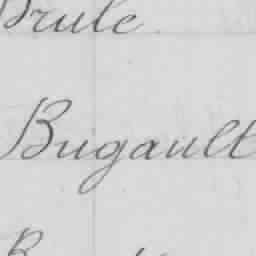 Brule
Bugault